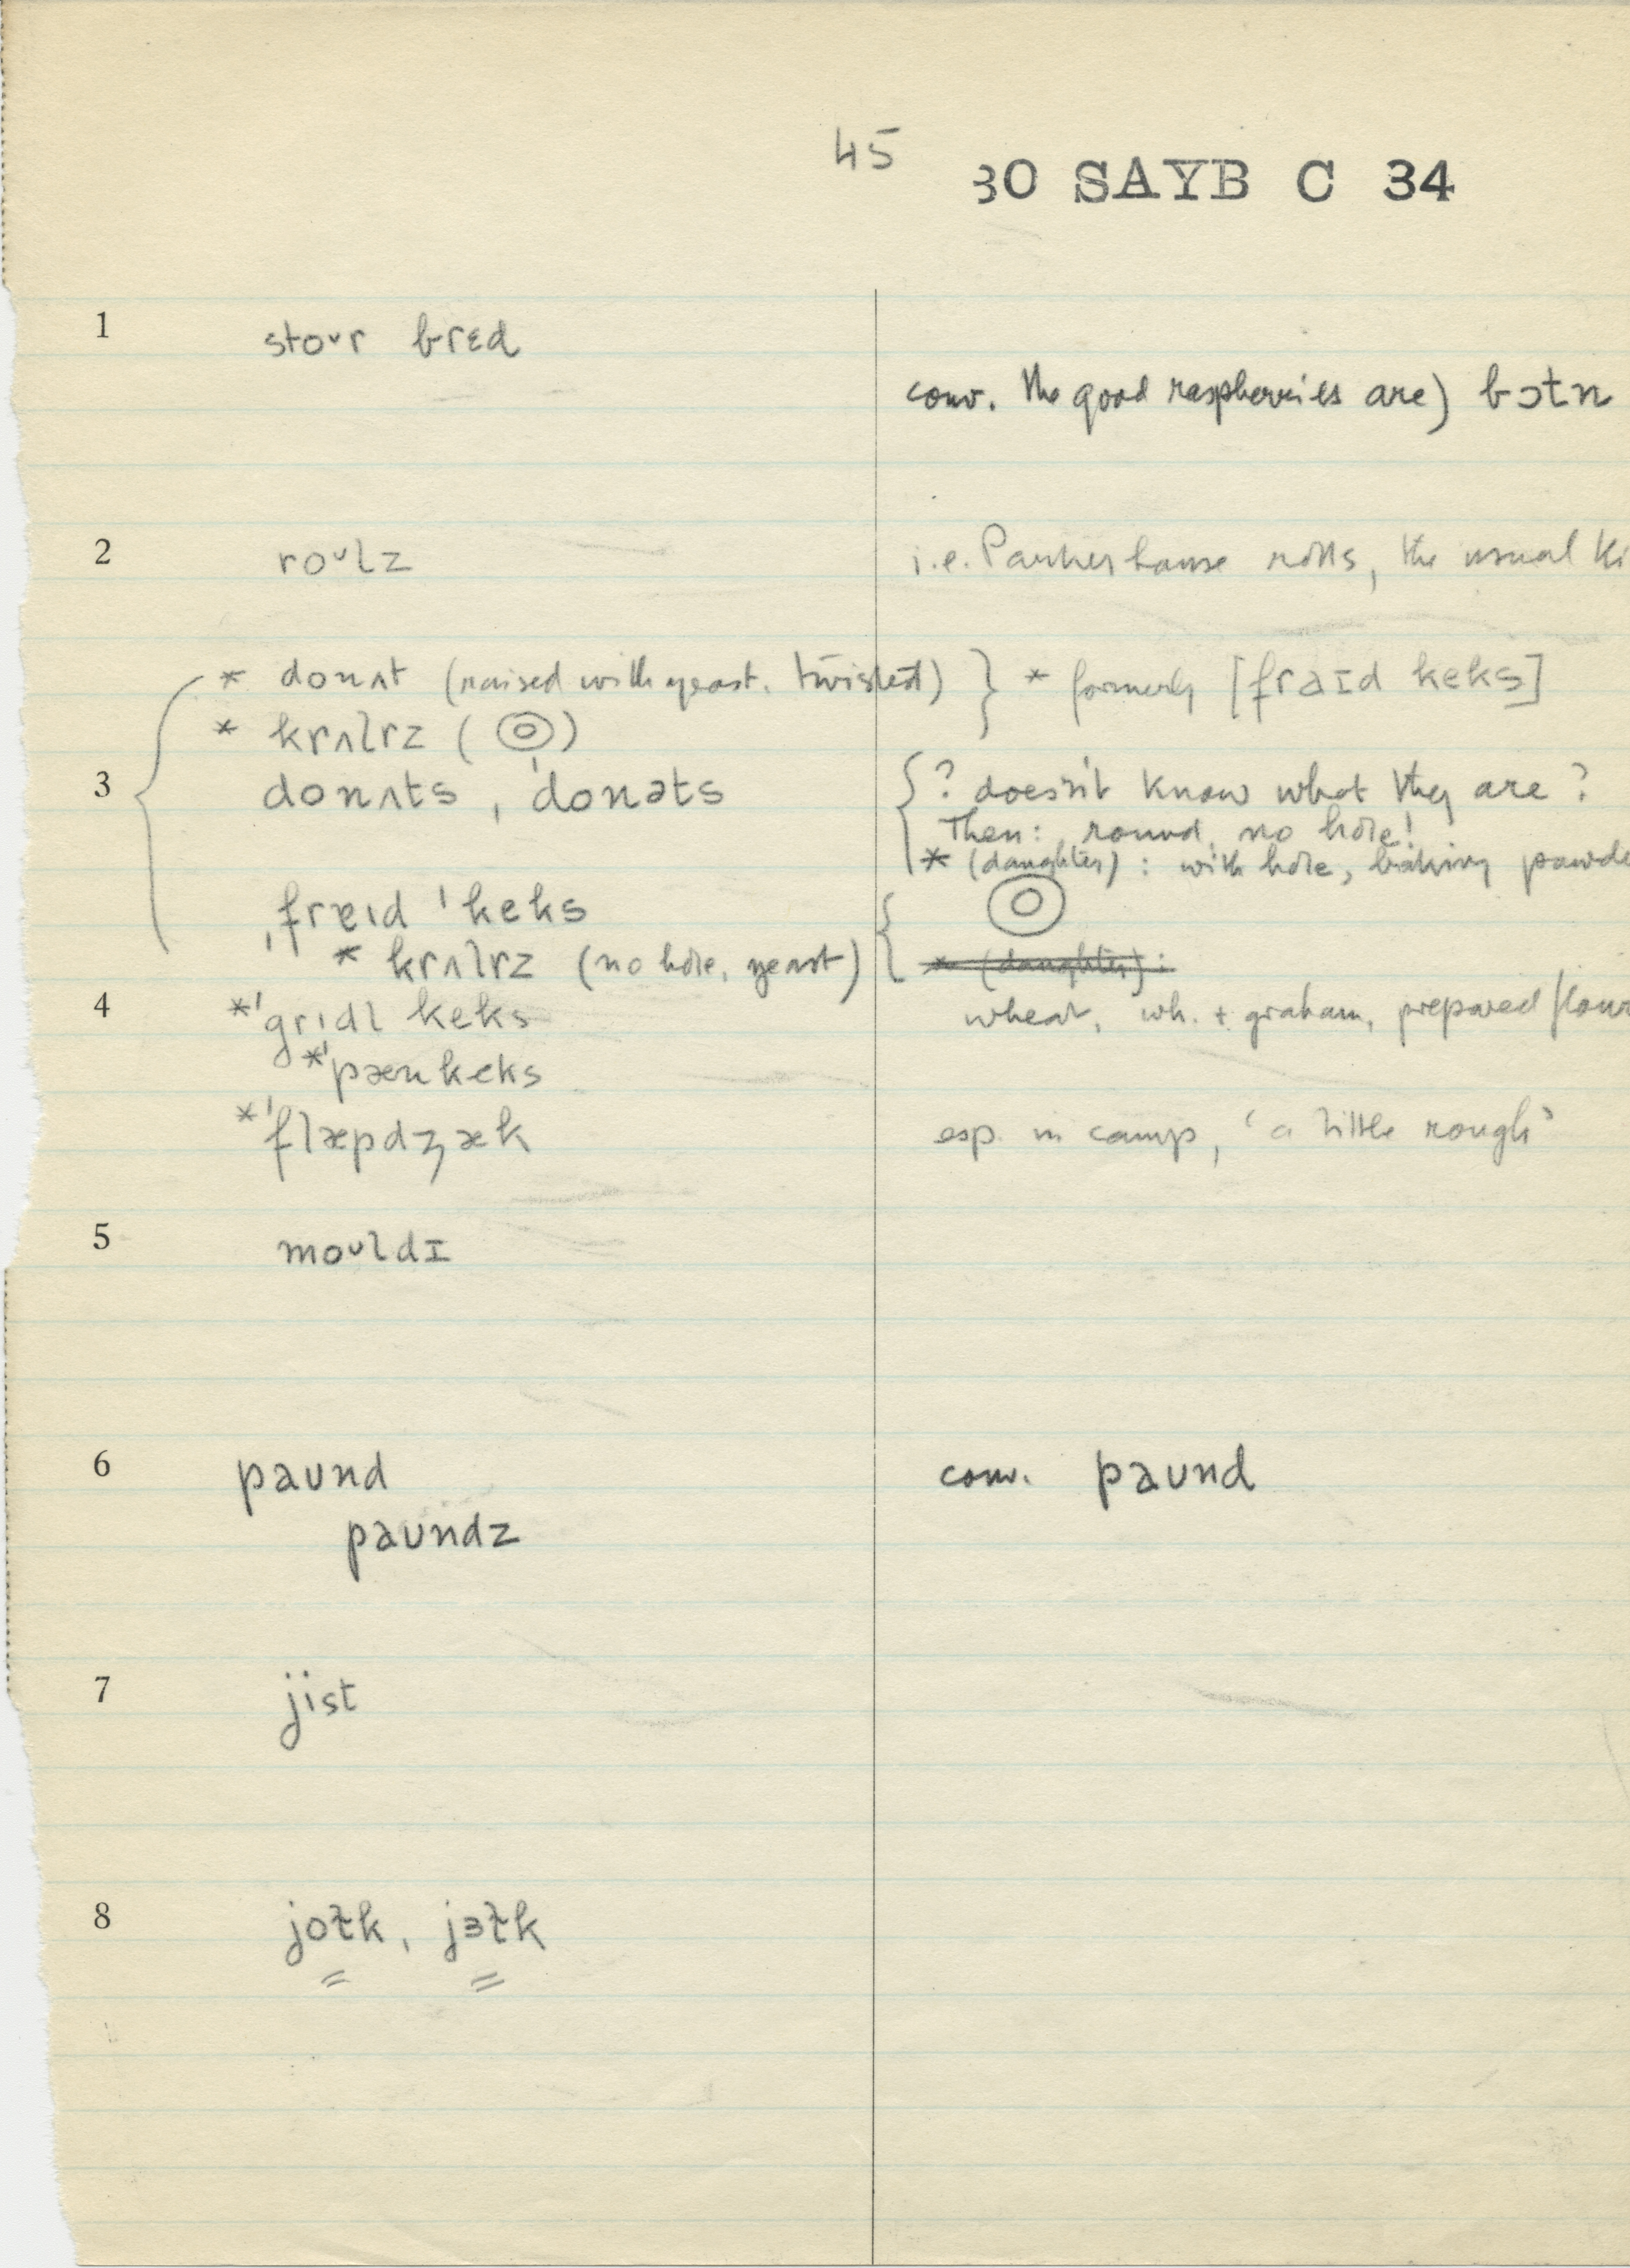 45
30 SAYB C 34
1 stoᴜr brɛd
conv. The good raspberries are) bɔtn
2 roᴜlz i.e. Parkerhouse rolls, the usual ki
* donʌt (raised with yeast. twisted) } * formerly [fraɪd keks]
* krʌlrz ( )
3 donʌts, ˈdonəts { ? doesn't know what they are ?
Then: round, no hole!
* (daughter) : with hole, baking powde
ˌfrɐɪd ˈkeks
* krʌlrz (no hole, yeast) * (daughter) :
4 *ˈgrɪdl keks wheat, wh. + graham, prepared flour
*ˈpænkeks
*ˈflæpdʒæk esp. in camp, 'a little rough'
5 moᴜldɪ
6 paᴜnd conv. paᴜnd
paᴜndz
7 jist
8 joɫk, jɜɫk